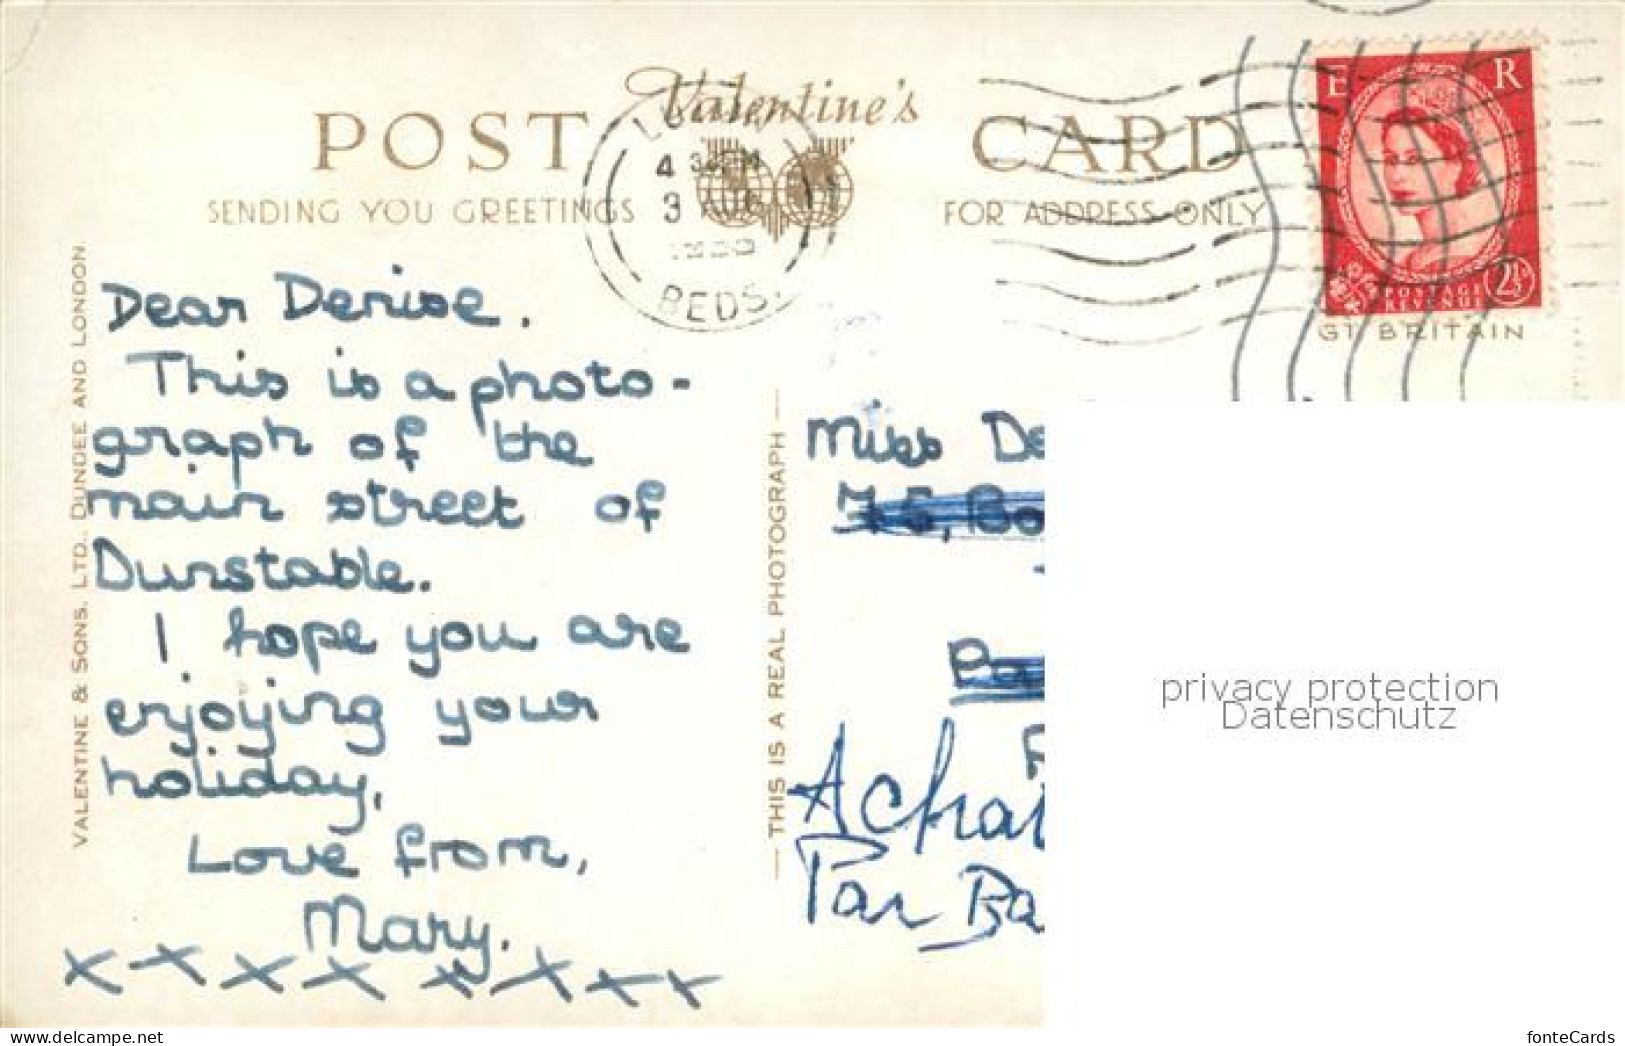 Valentine's
POST CARD
SENDING YOU GREETINGS
FOR ADDRESS ONLY
4
3
BEDS.
E R
POSTAGE
REVENUE
2½D
GT BRITAIN
VALENTINE & SONS, LTD., DUNDEE AND LONDON.
Dear Denise.
This is a photo-
graph of the
main street of
Dunstable.
I hope you are
enjoying your
holiday,
Love from,
Mary.
x x x x x x x x
— THIS IS A REAL PHOTOGRAPH —
Miss De
75, Bo
Pa
Achai
Par Ba
privacy protection
Datenschutz
fonteCards